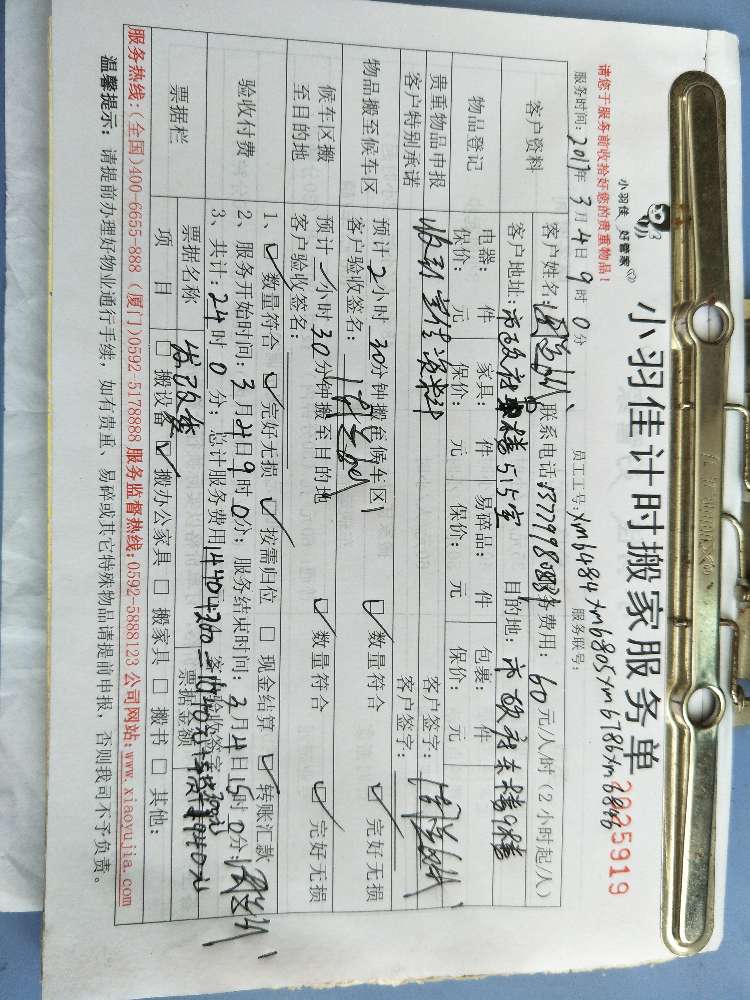 小羽佳 好管家
小羽佳计时搬家服务单
请您于服务前收拾好您的贵重物品！
2025919
服务时间：2017年3月4日9时0分
员工工号：xm6484 xm6805 xm6786 xm6846
服务联号：
客户资料
客户姓名：
联系电话：
服务费用：60元/人/时（2小时起/人）
客户地址：市政府 楼515室
目的地：市政府东楼9楼
物品登记
电器： 件 家具： 件 易碎品： 件 包裹： 件
保价： 元 保价： 元 保价： 元 保价： 元
贵重物品申报
客户特别承诺
客户签字：
客户签字：
物品搬至候车区
预计2小时30分钟搬至候车区
数量符合 完好无损
客户验收签名：
候车区搬
至目的地
预计 小时30分钟搬至目的地
数量符合 完好无损
客户验收签名：
验收付费
1、数量符合 完好无损 按需归位 现金结算 转账汇款
2、服务开始时间：3月4日9时0分；服务结束时间：3月4日15时0分；
3、共计：24时0分；总计服务费用1440+200
客户验收签字
票据栏
票据名称
票据金额
项 目
搬设备 搬办公家具 搬家具 搬书 其他：
服务热线：(全国)400-6655-888 (厦门)0592-5178888 服务监督热线：0592-5888123 公司网站：www.xiaoyujia.com
温馨提示：请提前办理好物业通行手续，如有贵重、易碎或其它特殊物品请提前申报，否则我司不予负责。